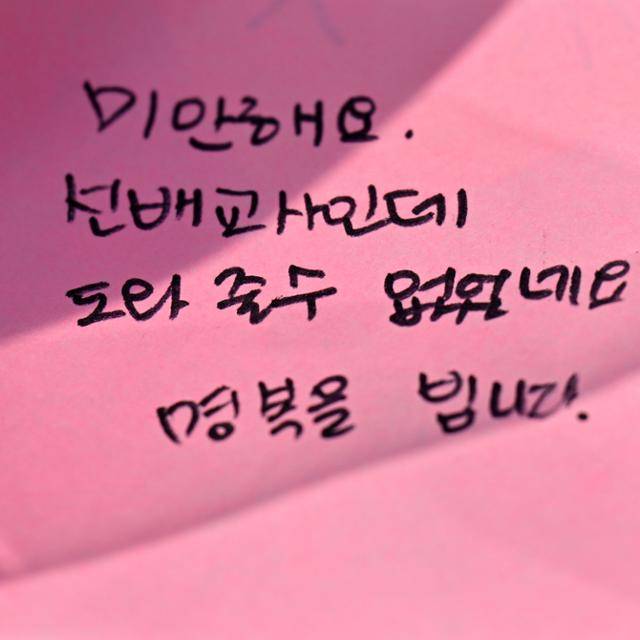 미안해요.
선배교사인데
도와 줄수 없었네요
명복을 빕니다.